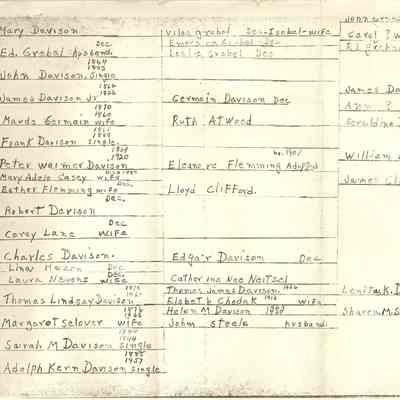 Mary Davison
Dec
Ed. Grobal Husband
John Davison. Single
1866
James Davison Jr
1870
1960
Mauds Germain wife
Frank Davison Single.
1920
Peter Warmer Davison
Mary Adele Casey wife
Dec.
Esther Flemming wife
Dec.
Robert Davison
Dec
Corey Lane Wife
Charles Davison.
Lina Hezen Dec
Laura Nevons Wife
Dec.
Thomas Lindsay Davison
Margaret Selover Wife
Sarah M Davison Single
Adolph Kern Davison Single
1957
Vilas Grobel Isobel-Wife
Emerson Grobel Dec
Leslie Grobel Dec
Germain Davison Dec
Ruth Atwood
Eleanore Flemming Adopted
Lloyd Clifford.
Edgar Davison Dec
Catherina Nee Neitsel
Thomas James Davison.
Wife
Helen M Davison
John Steele Husband
Carol ? W
James Da
Ann ?
Geraldine
William
James Cl
Sharen M.S